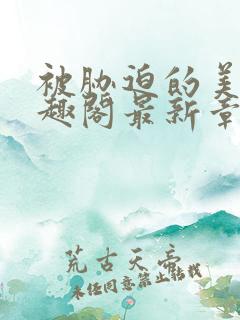 被胁迫的美
趣阁最新章
荒古天帝
未经同意禁止转载